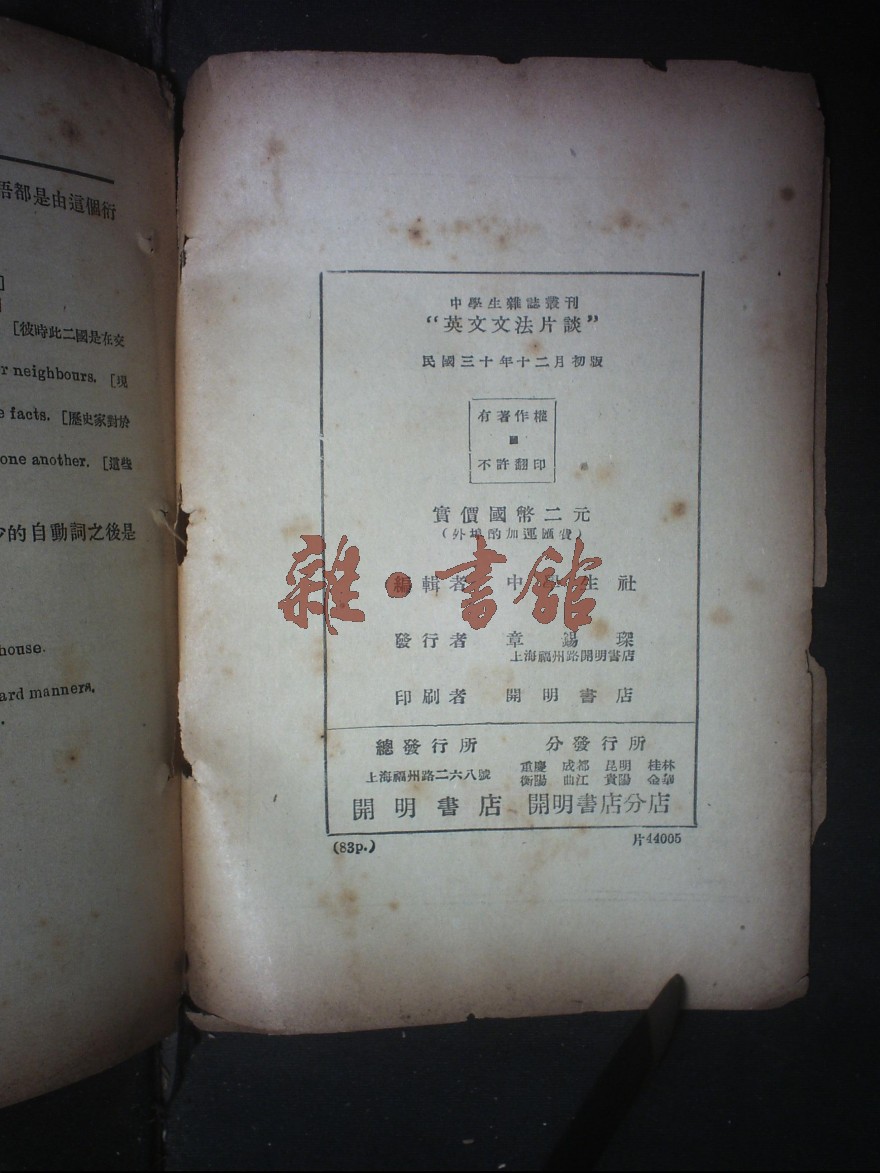 語都是由這個衍
[彼時此二國是在交
r neighbours. [現
e facts. [歷史家對於
one another. [這些
少的自動詞之後是
house.
ard manners,
中學生雜誌叢刊
“英文文法片談”
民國三十年十二月初版
有著作權
不許翻印
實價國幣二元
(外埠酌加運匯費)
編輯者 中學生社
發行者 章錫琛
上海福州路開明書店
印刷者 開明書店
總發行所
上海福州路二六八號
開明書店
分發行所
重慶 成都 昆明 桂林
衡陽 曲江 貴陽 金華
開明書店分店
(83p.)
片44005
雜·書館